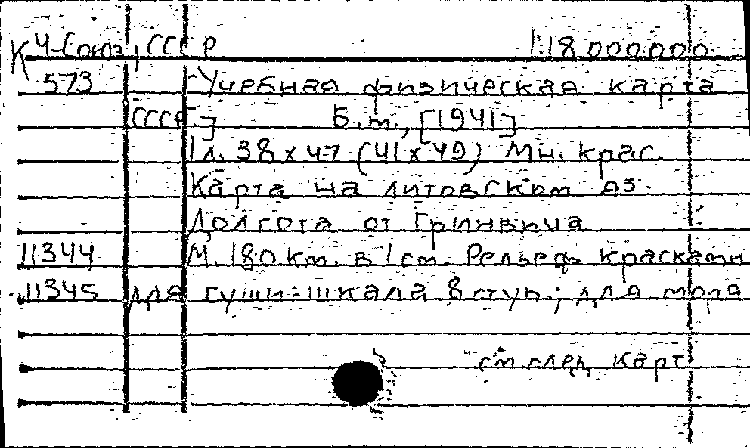 К Ч-Союз, СССР 1:18 000000
573 [Учебная физическая карта
СССР.] Б.т., [1941]
1 л. 38 x 47 (41 x 49) Мн. крас.
Карта на литовском яз.
Долгота от Гринвича
11344 М. 180 км. в 1 см. Рельеф красками
11345 для суши-шкала 8 ступ.; для моря
см след карт